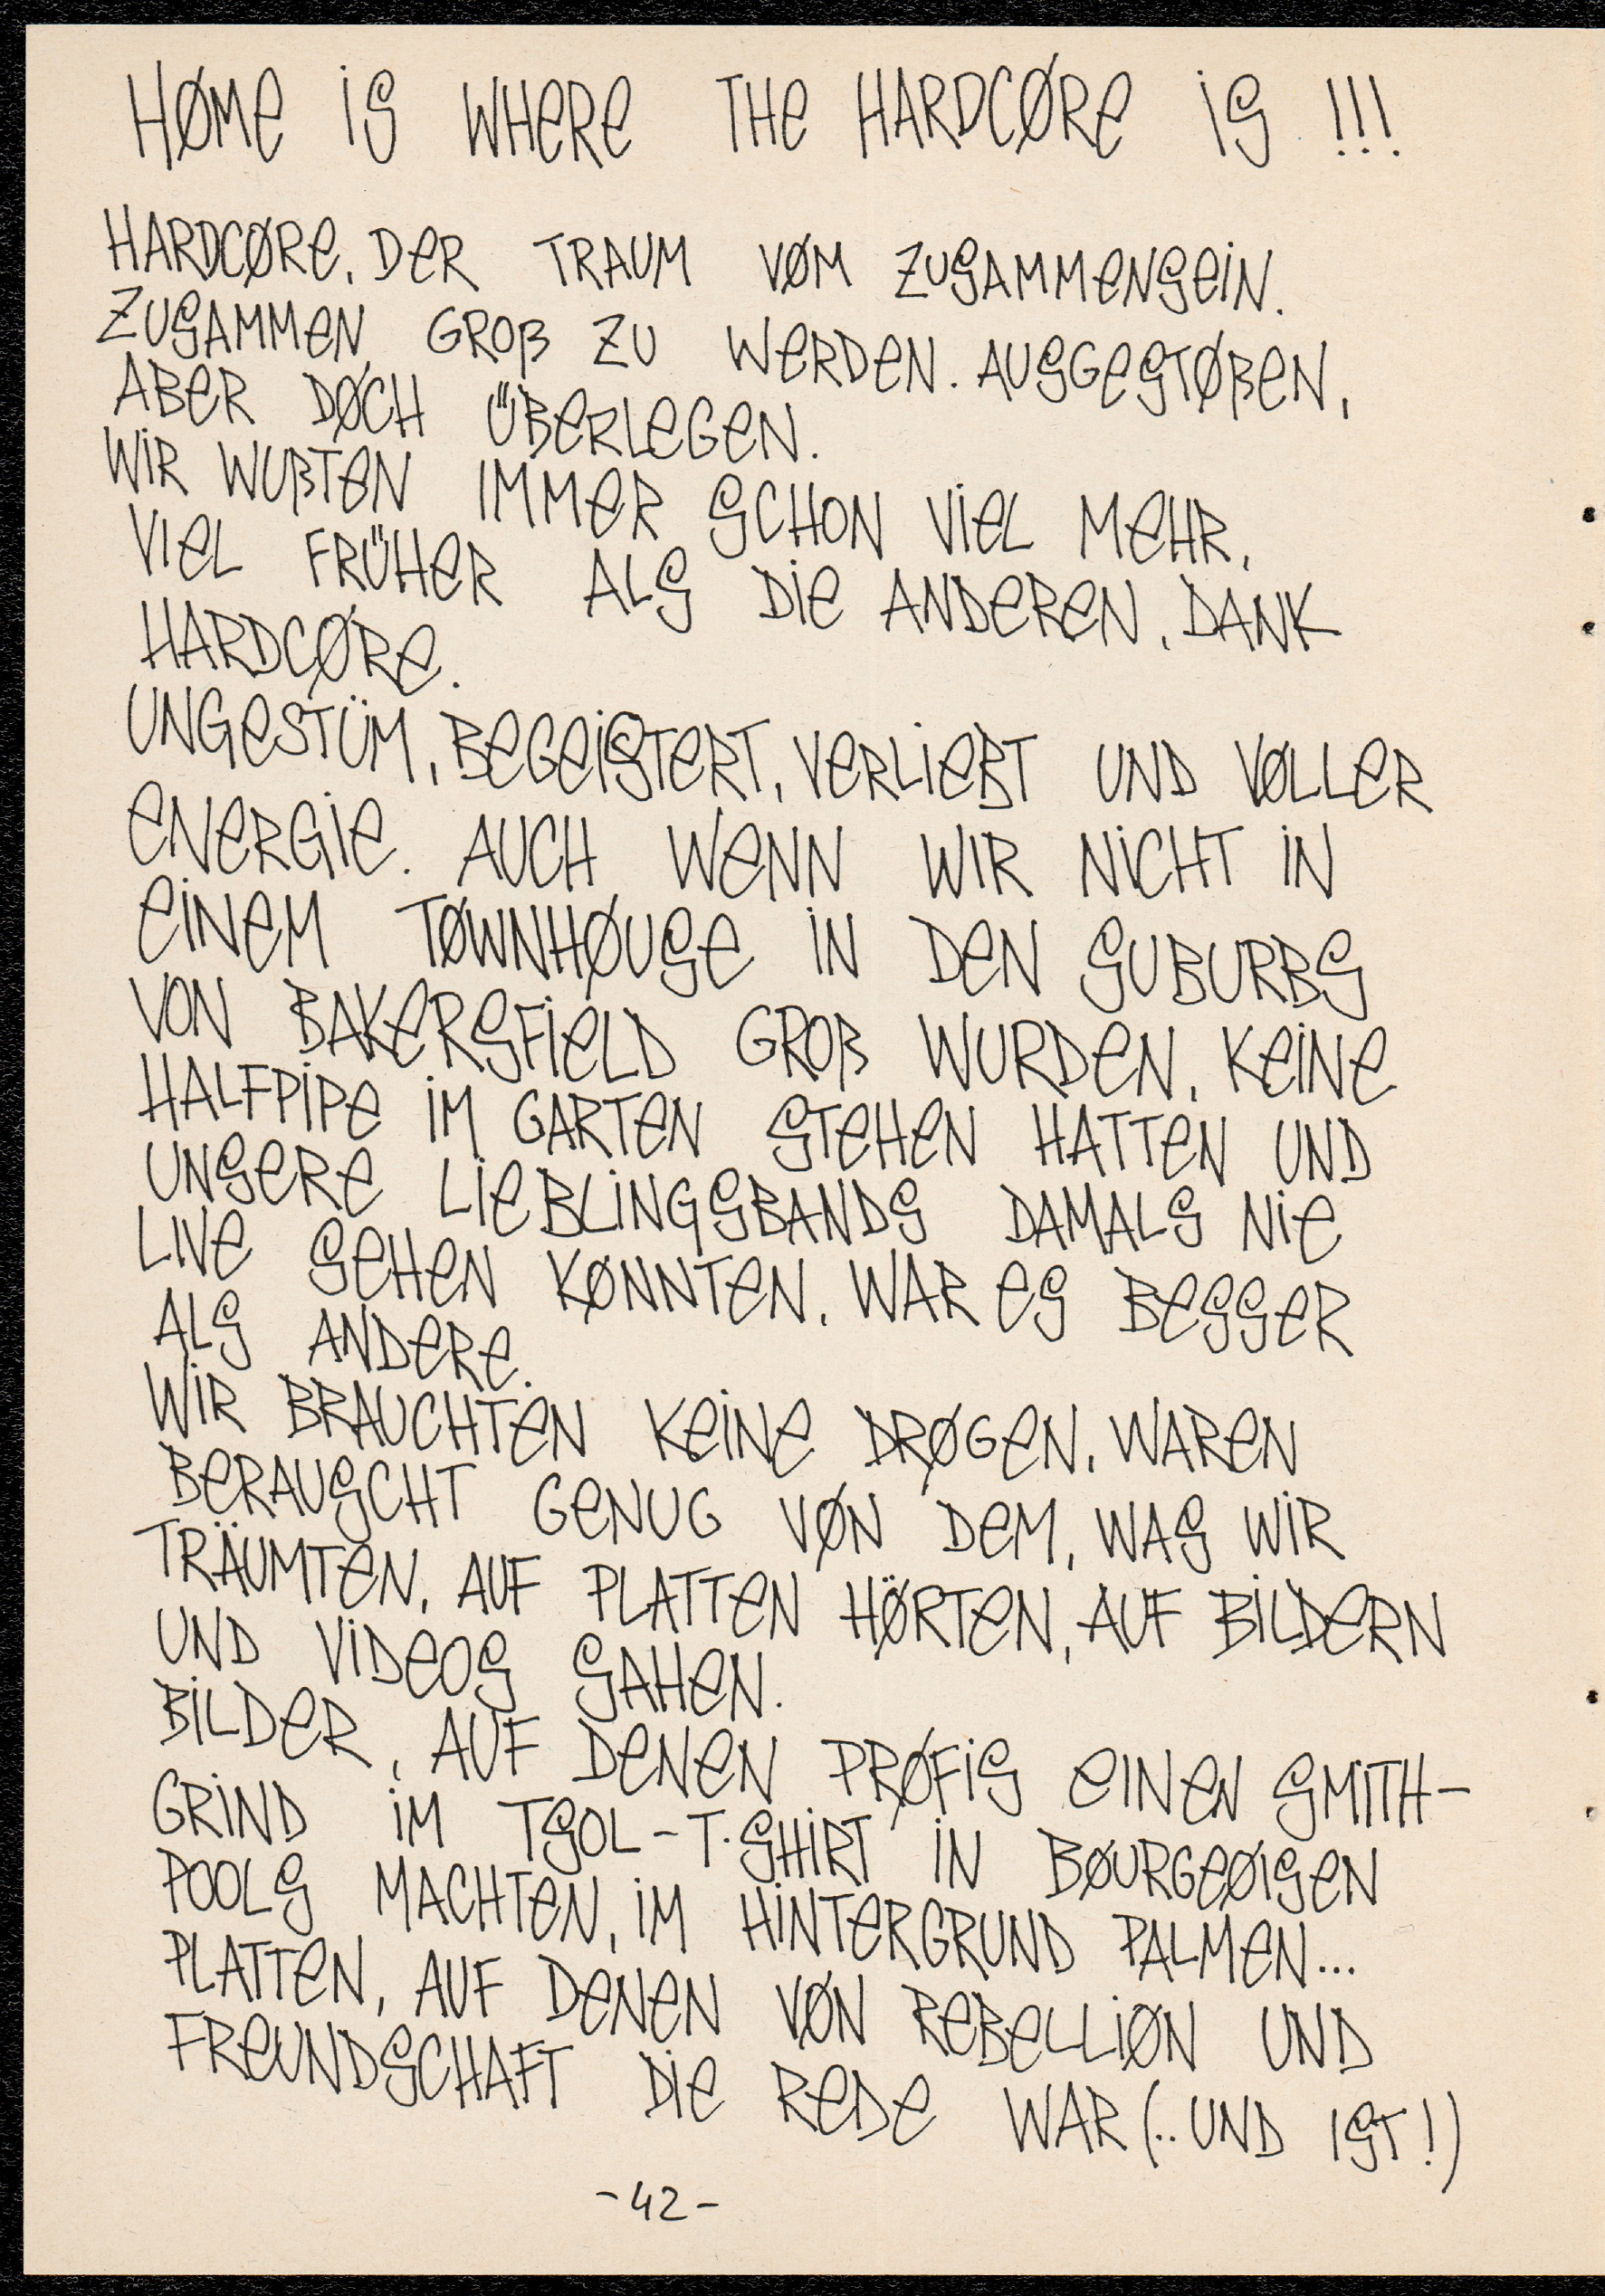 HØMe iS WHeRe THe HARDCØRe iS !!!
HARDCØRe, DeR TRAUM VØM ZUSAMMeNSeiN.
ZUSAMMeN GROß ZU WeRDeN. AUSGeSTØßeN,
ABeR DØCH ÜBeRLeGeN.
WiR WUßTeN IMMeR SCHON ViEL MeHR,
VieL FRÜHeR ALS Die ANDeReN, DANK
HARDCØRe.
UNGeSTÜM, BeGeiSTeRT, VeRLieBT UND VØLLeR
eNeRGie. AUCH WeNN WIR NiCHT iN
eiNeM TØWNHØUSe iN DeN SUBURBS
VON BAKeRSFieLD GROß WURDeN, KeiNe
HALFPiPe iM GARTeN STeHeN HATTeN UND
UNSeRe LieBLiNGSBANDS DAMALS Nie
LIVe SeHeN KØNNTeN, WAR eS BeSSeR
ALS ANDeRe.
WiR BRAUCHTeN KeiNe DRØGeN, WAReN
BeRAUSCHT GeNUG VØN DeM, WAS WiR
TRÄUMTeN, AUF PLATTeN HØ̈RTeN, AUF BiLDeRN
UND ViDeOS SAHeN.
BiLDeR, AUF DeNeN PRØFiS eINeN SMITH-
GRiND iM TSOL-T.SHiRT iN BØURGeØISeN
POOLS MACHTeN, iM HiNTeRGRUND PALMeN...
PLATTeN, AUF DeNeN VØN ReBeLLiØN UND
FReUNDSCHAFT Die ReDe WAR (.. UND IST!)
-42-